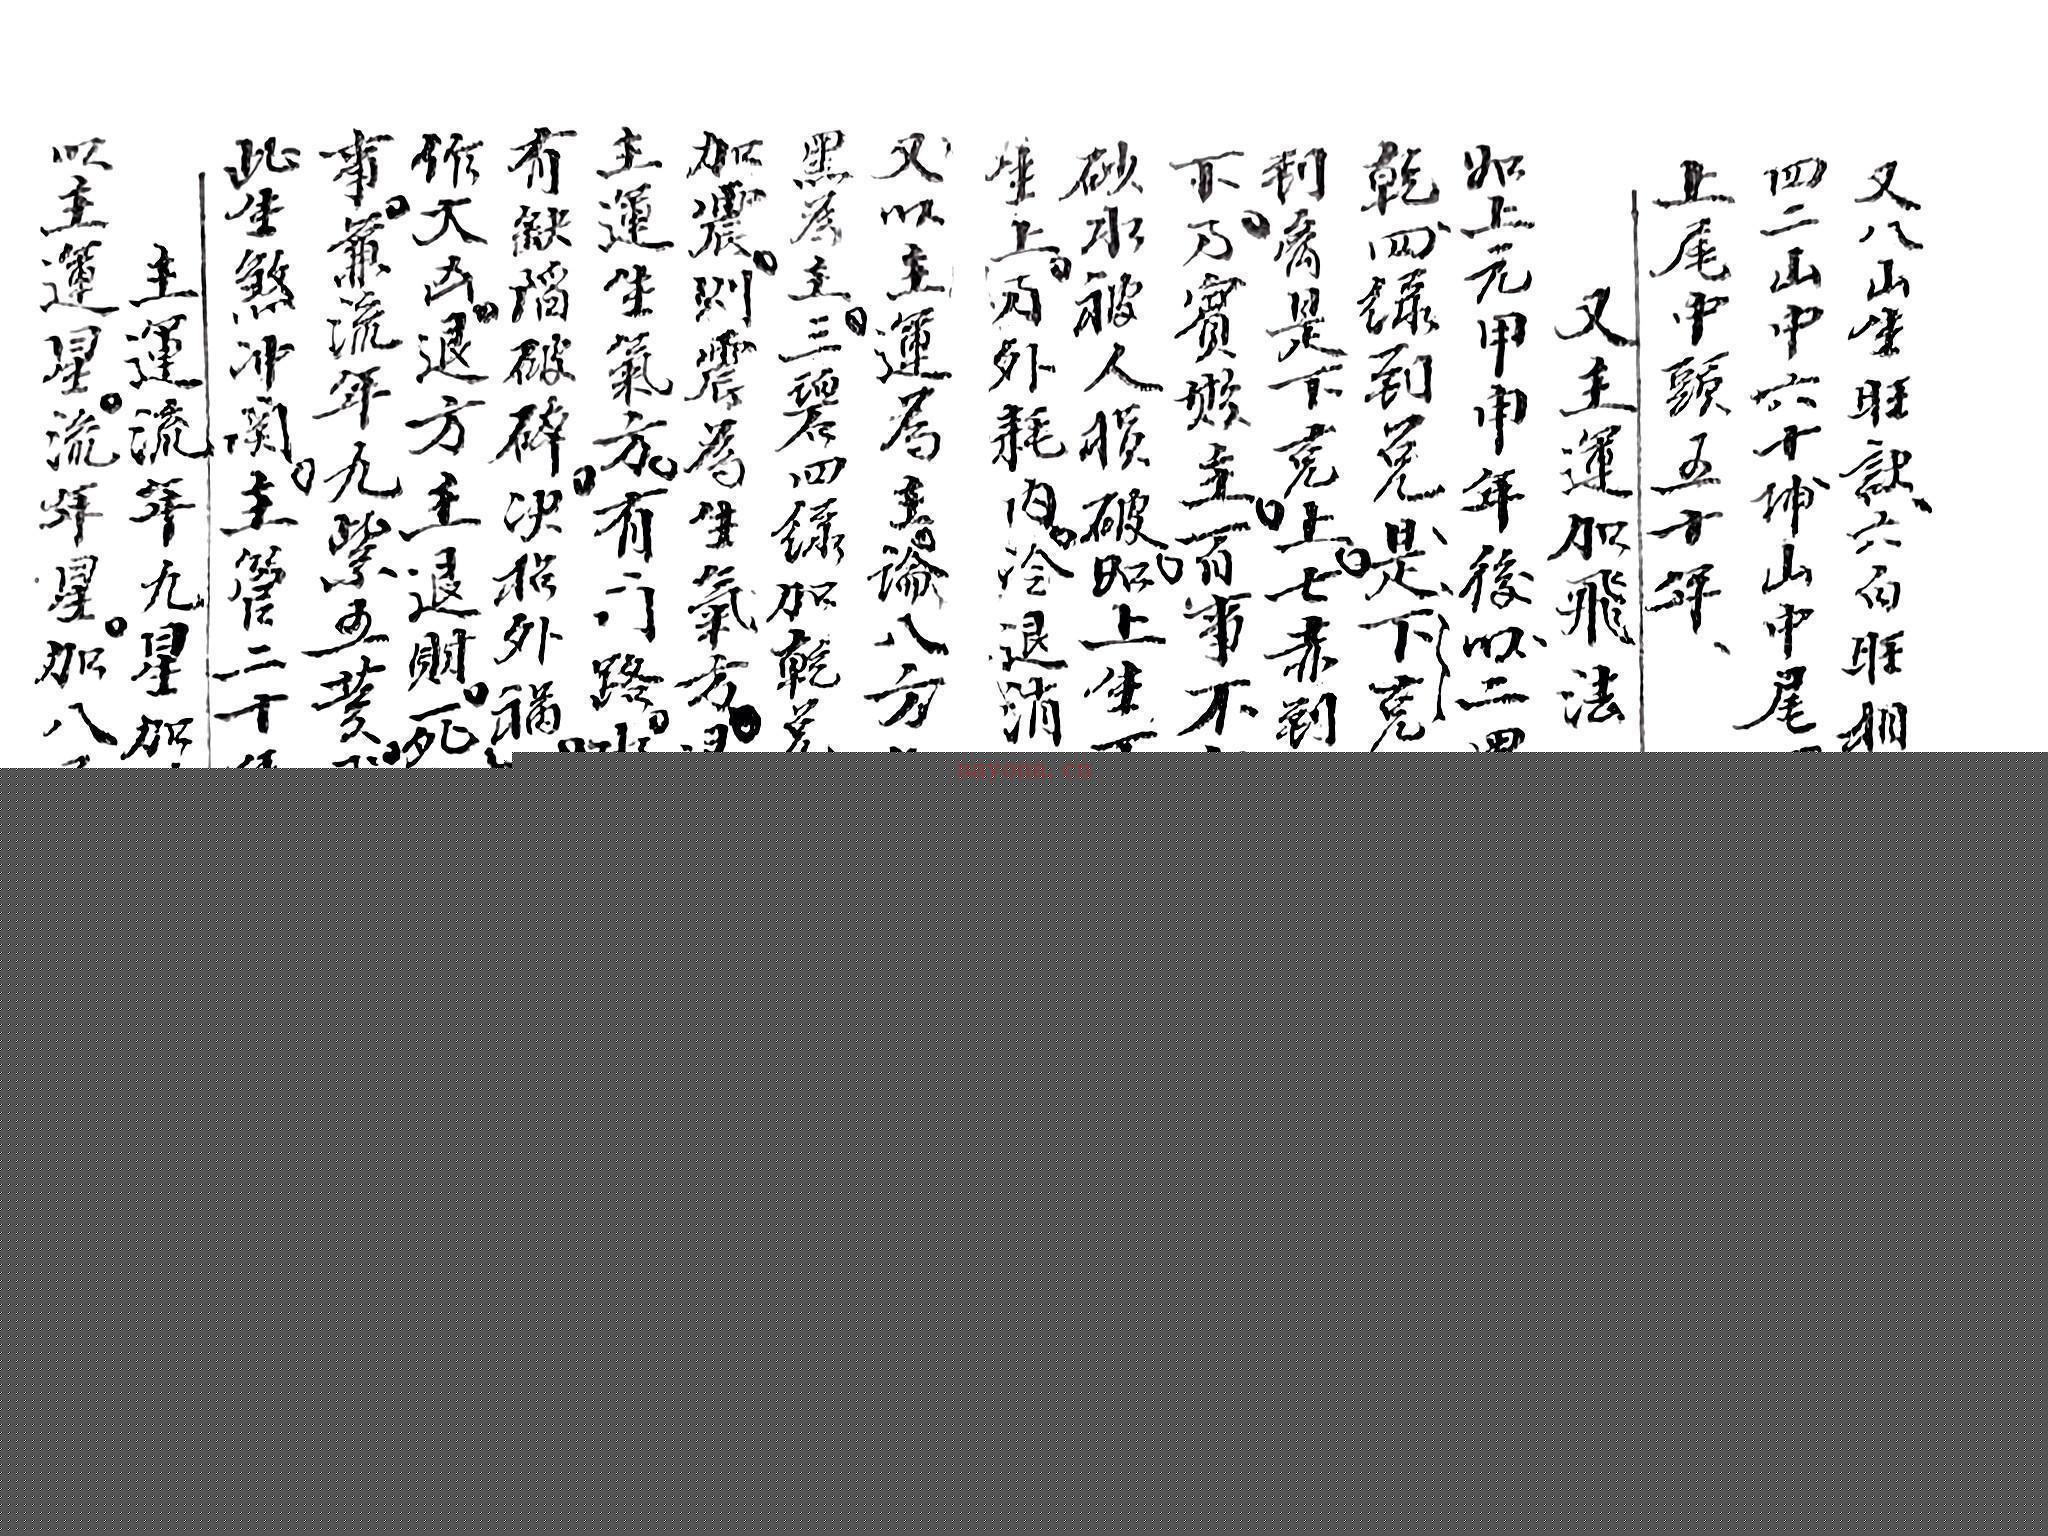 又八山坐旺訣六白旺相
四二山中六十坤山中尾
上尾中頭五十年
又主運加飛法
如上元甲申年後以二黑
乾四綠到兌是下克
到离是下克上七赤到
下乃實㷼主一百事不
砂水被人損破昭上生下
生上乃外耗內冷退消
又以主運為主論八方
黑為主三碧四綠加乾
加震則震為生氣方
主運生氣方有门路
有缺陷破碎决招外禍
作大凶退方主退財死
事兼流年九紫五黃
此坐煞冲関主管二十
主運流年九星加
以主運星流年星加八
nayona.cn